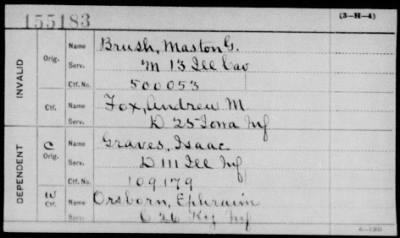 155183 (3-H-4)
INVALID
Orig. Name Brush, Maston G.
Serv. M 13 Ill Cav
Ctf. No. 500053
Ctf. Name Fox, Andrew M
D 25 Iowa Inf
DEPENDENT
C Orig. Name Graves, Isaac
Serv. D 111 Ill Inf
Ctf. No. 109179
W Ctf. Name Orsborn, Ephraim
Serv. C 26 Ky Inf